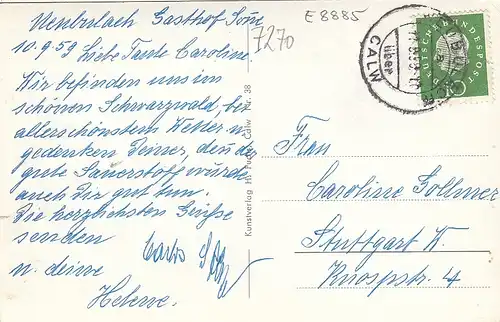 Neubulach Gasthof Sonne
10.9.59 Liebe Tante Caroline.
Wir befinden uns im
schönen Schwarzwald, bei
allerschönstem Wetter u.
gedenken Deiner, denn der
gute Sauerstoff würde
auch Dir gut tun.
Die herzlichsten Grüße
senden
u. deine
Helene.
E 8885
7270
über
CALW
DEUTSCHE BUNDESPOST
10
Kunstverlag H. Fuchs, Calw Nr. 38
Frau
Caroline Gollmer
Stuttgart W.
Knospstr. 4